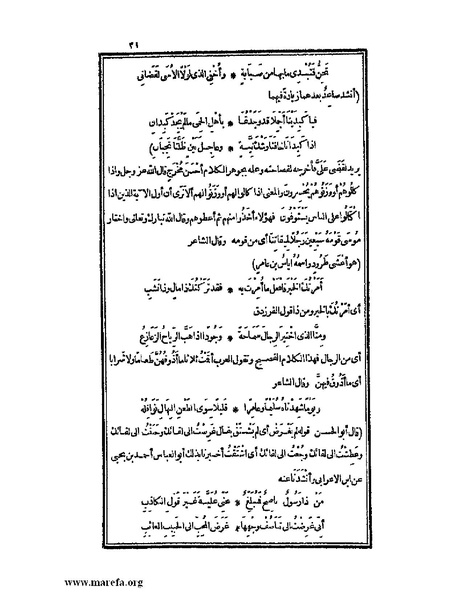 ٣١
تحنّ فتبدى ما بها من صبابة * وأخفى الذى لولا الأسى لقضانى
(أنشد صاعد بعد هما زيادة فيهما
فيا كبدينا أجملا قد وجدتما * بأهل الحمى مالم يجد كبدان
اذا كبدانا خافتا وشك نية * وعاجل بين ظلتا تجبان)
يريد لقضى علىّ فأخرجه لفصاحته وعلمه بجوهر الكلام أحسن مخرج قال الله عز وجل واذا
كالوهم أو وزنوهم يخسرون والمعنى اذا كالوا لهم أو وزنوا لهم ألا ترى أن أول الآية الذين اذا
اكتالوا على الناس يستوفون فهؤلاء أخذوا منهم ثم أعطوهم وقال الله تبارك وتعالى واختار
موسى قومه سبعين رجلا لميقاتنا أى من قومه وقال الشاعر
(هو أعشى طرود واسمه اياس بن عامر)
أمرتك الخير فافعل ما أمرت به * فقد تركتك ذا مال وذا نشب
أى أمرتك بالخير ومن ذا قول الفرزدق
ومنا الذى اختير الرجال سماحة * وجودا اذا هب الرياح الزعازع
أى من الرجال فهذا الكلام الفصيح وتقول العرب أقمت ثلاثا ما أذوقهن طعاما ولا شرابا
أى ما أذوق فيهن وقال الشاعر
ويوما شهدناه سليما وعامرا * قليلا سوى الطعن النهال نوافله
(قال أبو الحسن قوله لم يغرض أى لم يشتق يقال غرضت الى لقائك وحننت الى لقائك
وعطشت الى لقائك وجعت الى لقائك أى اشتقت أخبرنا بذلك أبو العباس أحمد بن يحيى
عن ابن الاعرابى وأنشدنا عنه
من ذا رسول ناصح فمبلغ * عنى علية غير قول الكاذب
أنى غرضت الى تناصف وجهها * غرض المحب الى الحبيب الغائب
www.marefa.org